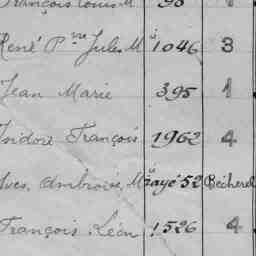 François Louis M 98 1
René Pre Jules M u 1046 3
Jean Marie 395 1
Isidore François 1962 4
Yves, Ambroise, M Rayé 52 Becherel
François Léon 1526 4